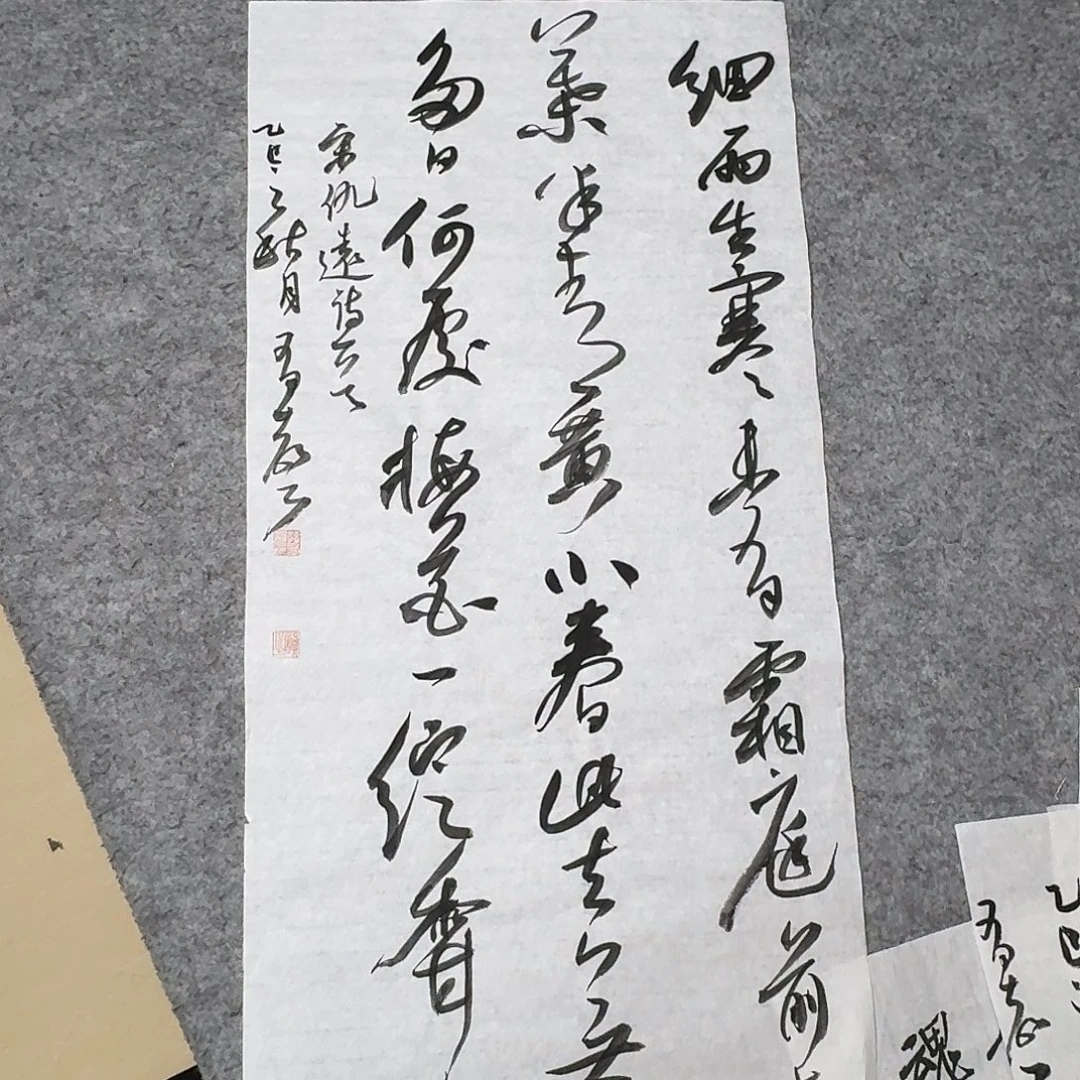 細雨生寒未有霜庭前
葉半青黃小春此去無
多日何處梅花一綻香
宋仇遠詩
乙巳之秋月
乙巳
魂